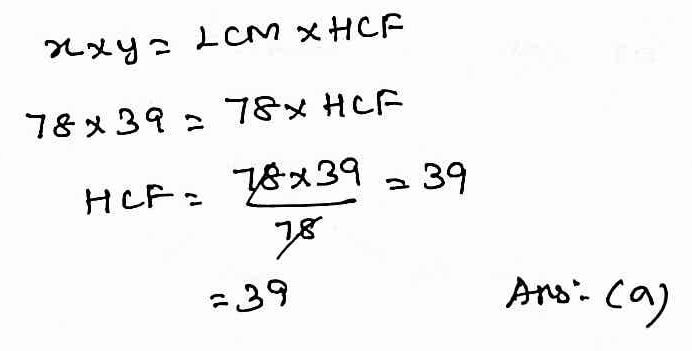 x×y = LCM × HCF
78×39 = 78× HCF
HCF = 78×39/78 = 39
= 39
Ans:- (a)